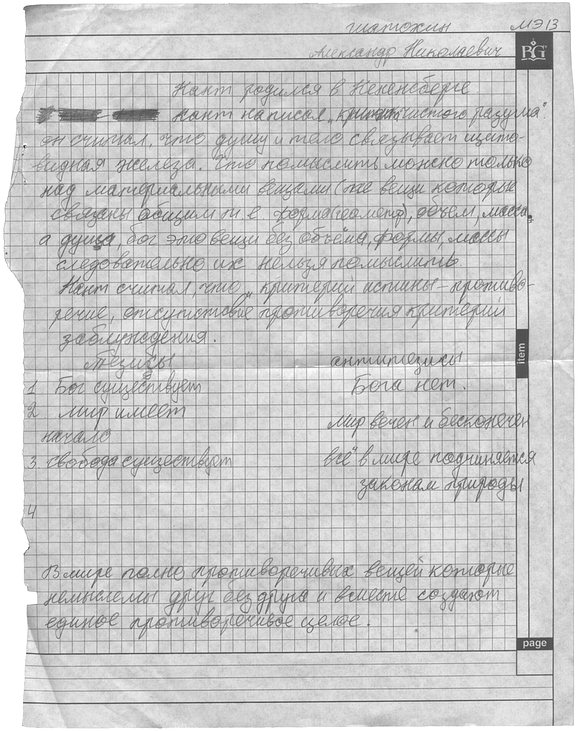 Шатохин МЭ13
Александр Николаевич
BG
Кант родился в Кененсберге
Кант написал „критик чистого разума"
он считал, что душу и тело связывает щито-
видная железа. Что помыслить можно только
над материальными вещами (же вещи которые
связаны общим т е форма(геометр), объем, масса,
а душа, бог это вещи без объёма, формы, массы
следовательно их нельзя помыслить
Кант считал, что „критерий истины - противо-
речие, отсутствие противоречия критерий
заблуждения.
Тезисы антитезисы
1 Бог существует Бога нет.
2 мир имеет
начало мир вечен и бесконечен
3 свобода существует всё в мире подчиняется
законам природы
4
В мире полно противоречивых вещей которые
немыслемы друг без друга и вместе создают
единое противоречивое целое.
item
page